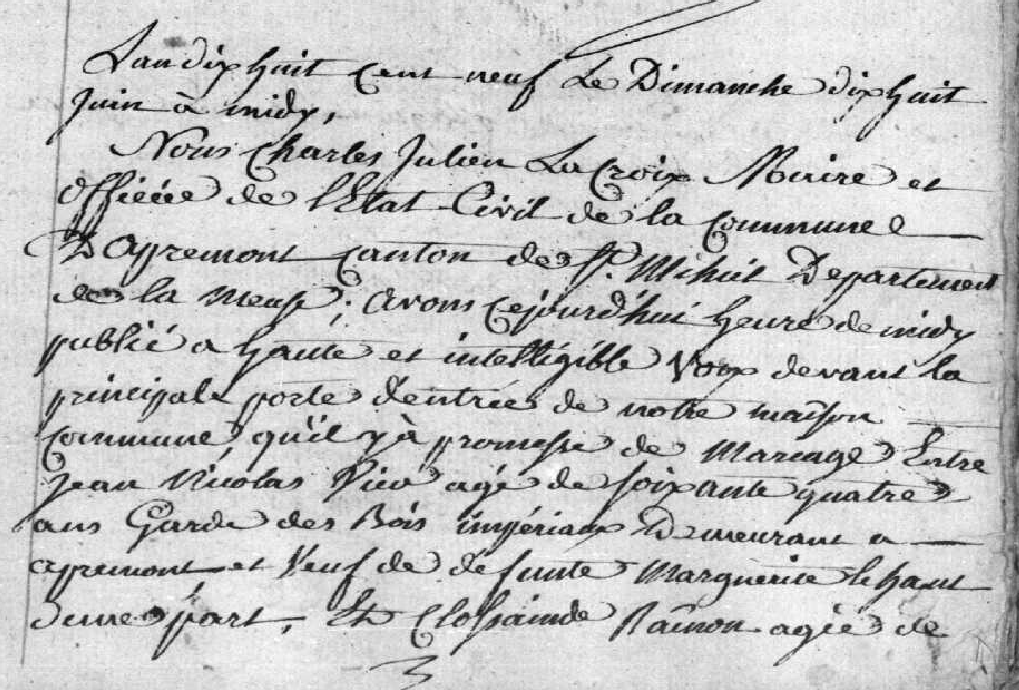 Lan dix huit cent neuf Le Dimanche dix huit
Juin à midy,
Nous Charles Julien LaCroix Maire et
officiée de l'Etat Civil de la Commune
D'apremont Canton de St. Mihiel Departement
de la meuse; avons cejourd'hui heure de midy
publié a haute et intelligible Voix devant la
principale porte d'entrée de notre maison
Commune, qu'il y à promesse de Mariage Entre
Jean Nicolas agé de soixante quatre
ans Garde des Bois impériaux Demeurant a
apremont et Veuf de défunte Marguerite lehaut
dune part, Et Clossainde agée de